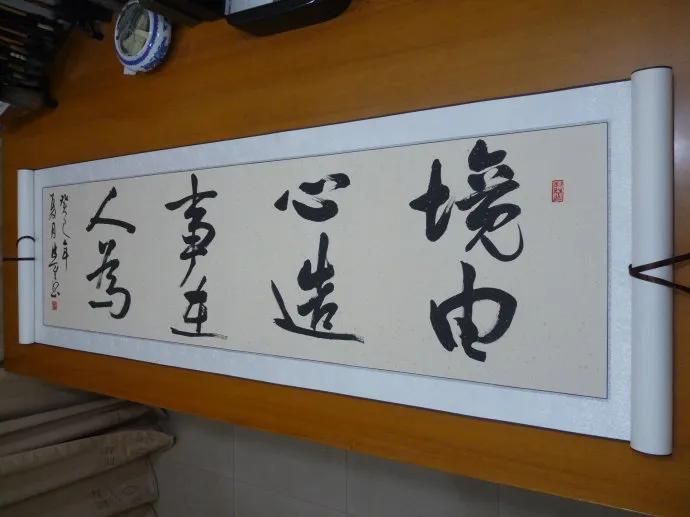 境由
心造
事在
人為
癸巳年
夏月